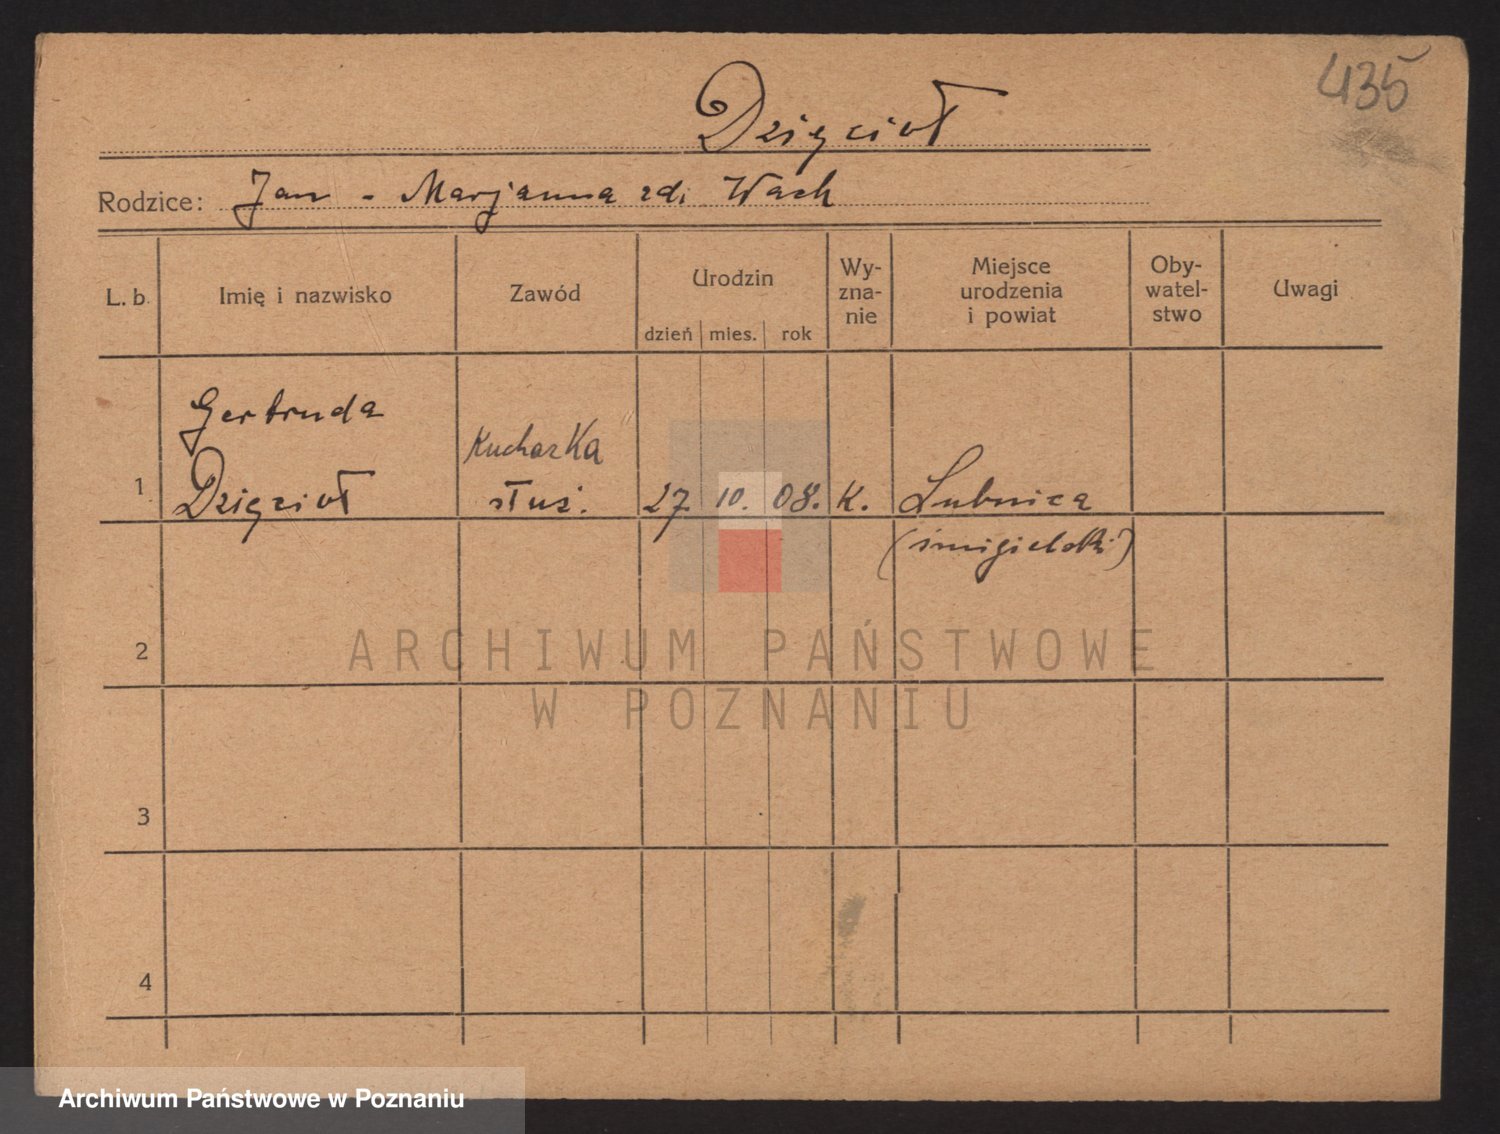 435
Dzięcioł
Rodzice: Jan - Marjanna zd. Wach
L. b. Imię i nazwisko Zawód Urodzin dzień mies. rok Wy-zna-nie Miejsce urodzenia i powiat Oby-watel-stwo Uwagi
Gertruda Kucharka
1 Dzięcioł służ. 27. 10. 08. K. Łubnica
(śmigielski)
2
ARCHIWUM PAŃSTWOWE
W POZNANIU
3
4
Archiwum Państwowe w Poznaniu